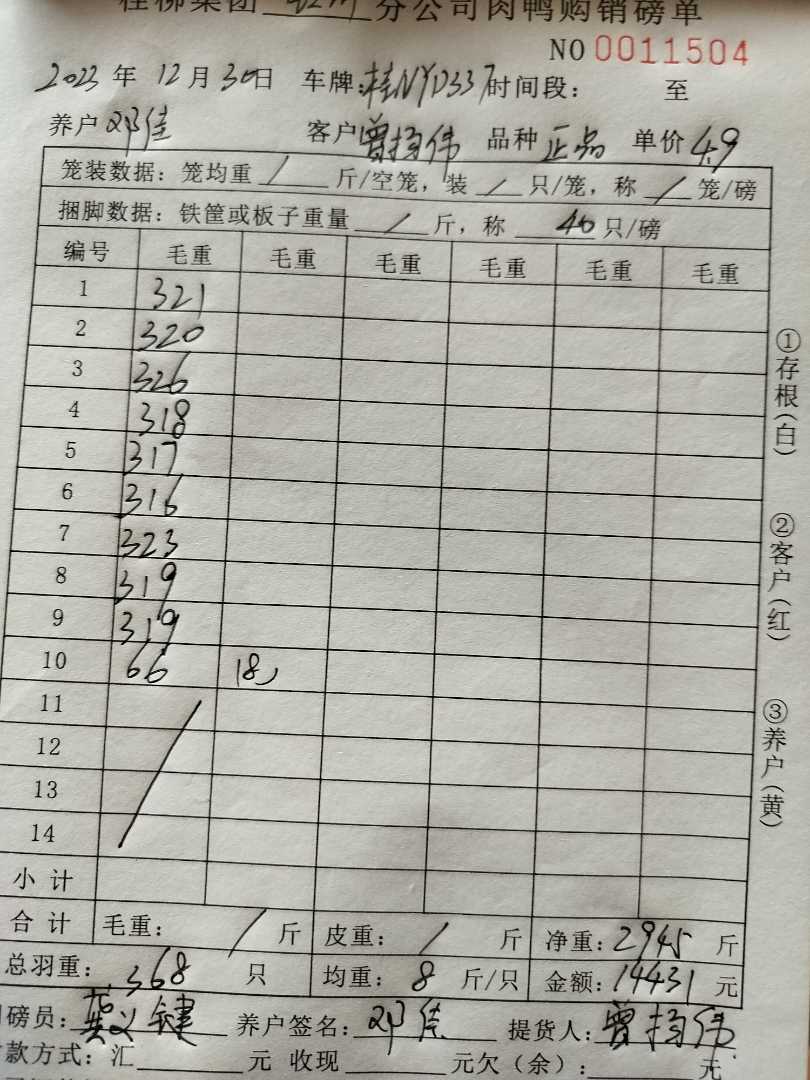 桂柳集团 分公司肉鸭购销磅单
NO 0011504
2023 年 12 月 30 日 车牌: 桂NYD337 时间段: 至
养户 邓佳 客户 曾杨伟 品种 正品 单价 4.9
笼装数据: 笼均重 / 斤/空笼, 装 / 只/笼, 称 / 笼/磅
捆脚数据: 铁筐或板子重量 / 斤, 称 40 只/磅
编号 毛重 毛重 毛重 毛重 毛重 毛重
1 321
2 320
3 326
4 318
5 317
6 316
7 323
8 319
9 319
10 66 18
11
12
13
14
小计
合计 毛重: / 斤 皮重: / 斤 净重: 2945 斤
总羽重: 368 只 均重: 8 斤/只 金额: 14431 元
磅员: 龚义键 养户签名: 邓佳 提货人: 曾杨伟
款方式: 汇 元 收现 元欠(余): 元
①存根(白)
②客户(红)
③养户(黄)